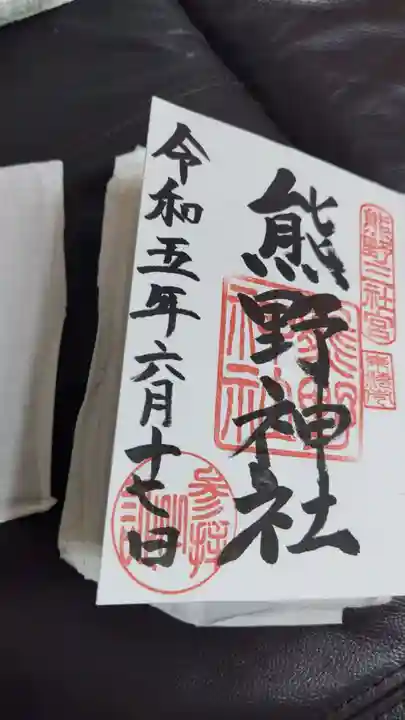 熊野三社宮
熊野神社
令和五年六月十七日